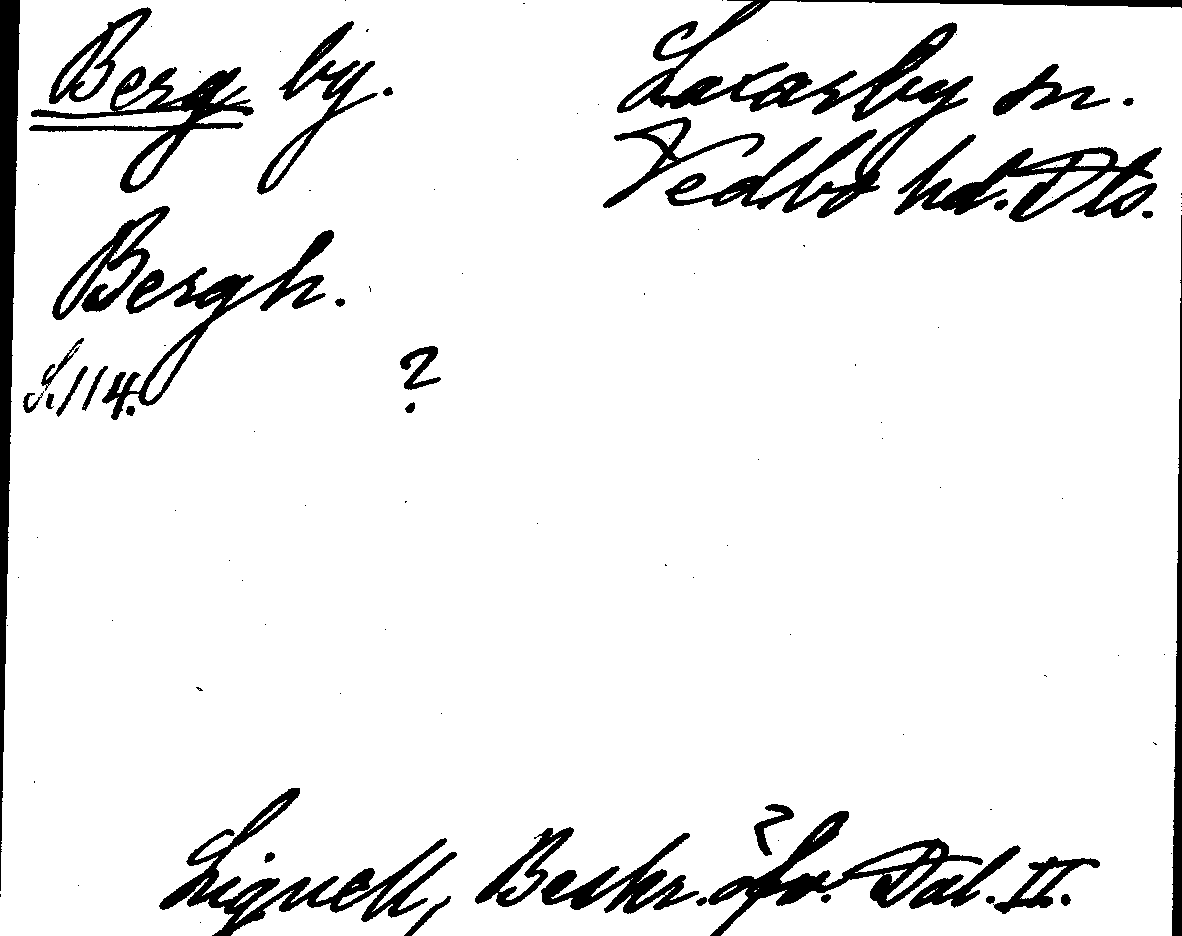 Berg by.
Laxarby sn.
Vedbo hd. Dls.
Bergh.
S. 114.
?
Lignell, Beskr. öfv. Dal. II.